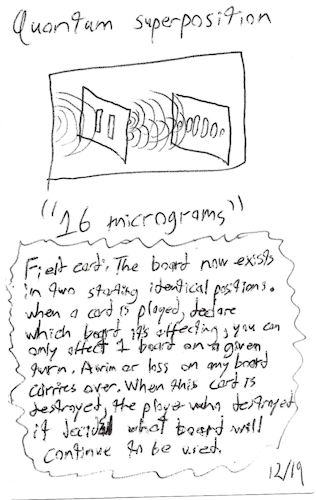 Quantum superposition
"16 micrograms"
Field card. The board now exists
in two starting identical positions.
when a card is played, declare
which board its affecting, you can
only affect 1 board on a given
turn. A win or loss on any board
carries over. When this card is
destroyed, the player who destroyed
it decides what board will
continue to be used.
12/19